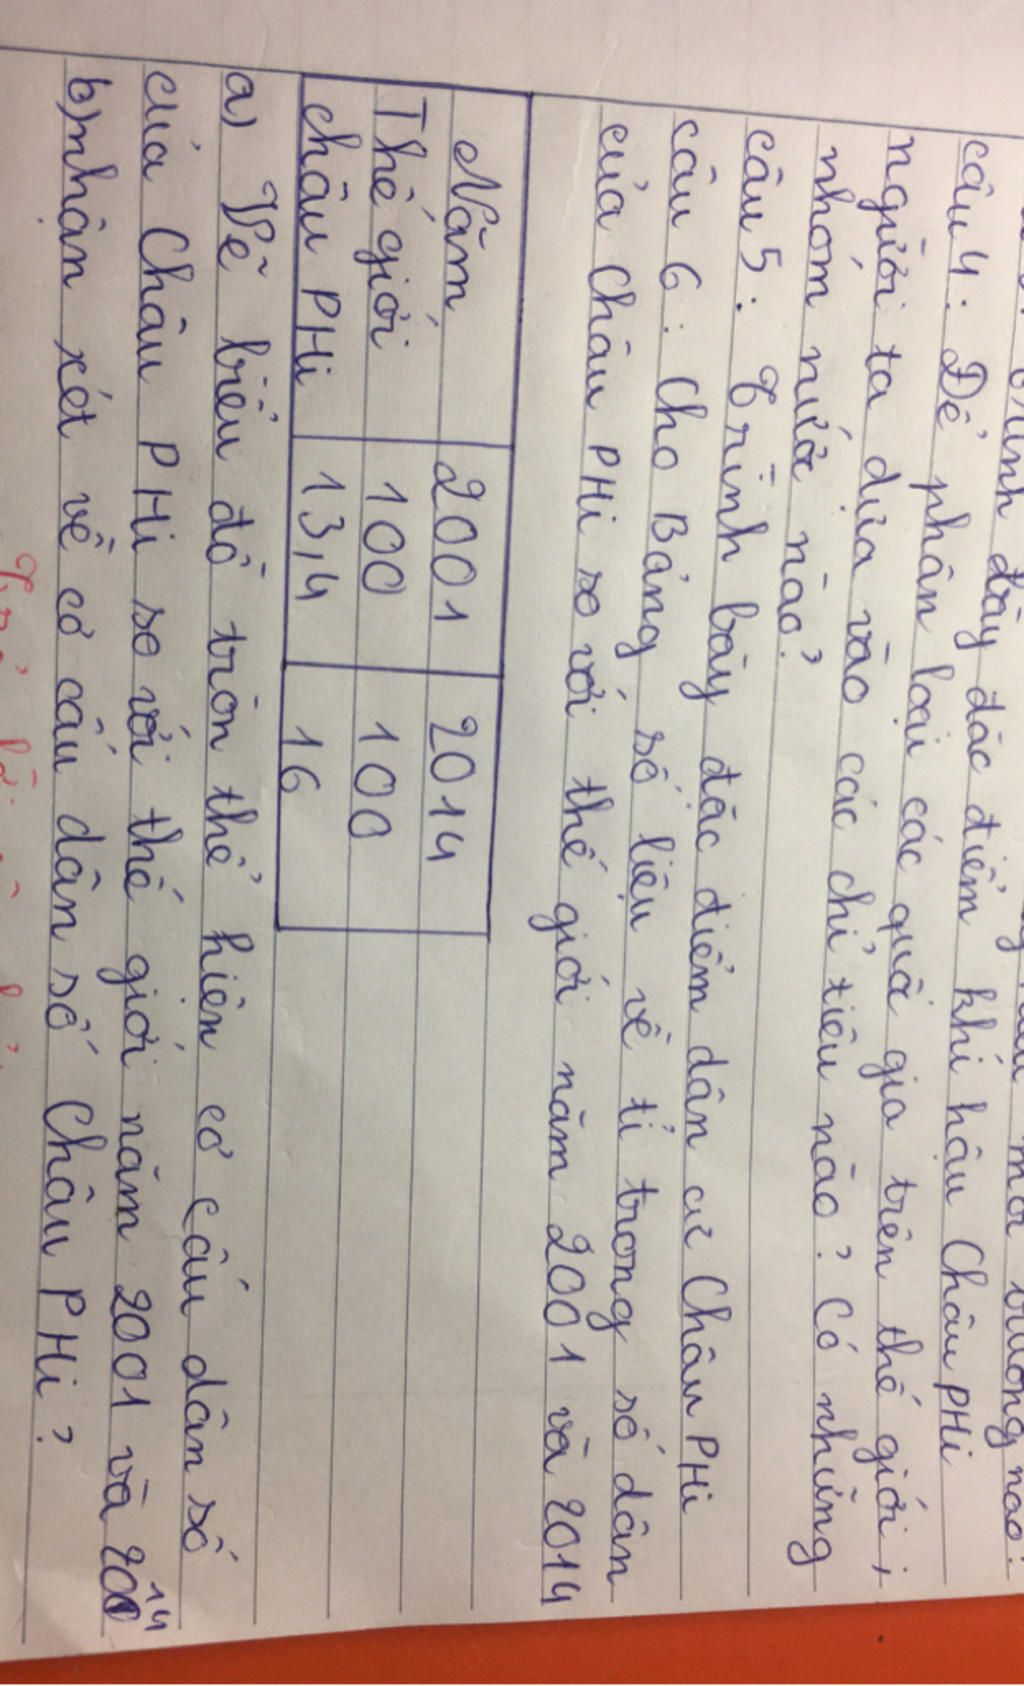 đặc điểm khí hậu Châu PHi
câu 4: Để phân loại các quốc gia trên thế giới,
người ta dựa vào các chỉ tiêu nào? Có những
nhóm nước nào?
câu 5: Trình bày đặc điểm dân cư Châu PHi
câu 6: Cho Bảng số liệu về tỉ trong số dân
của Châu PHi so với thế giới năm 2001 và 2014
Năm 2001 2014
Thế giới 100 100
Châu PHi 13,4 16
a) Vẽ biểu đồ tròn thể hiện cơ cấu dân số
của Châu PHi so với thế giới năm 2001 và 2014
b) nhận xét về cơ cấu dân số Châu PHi?